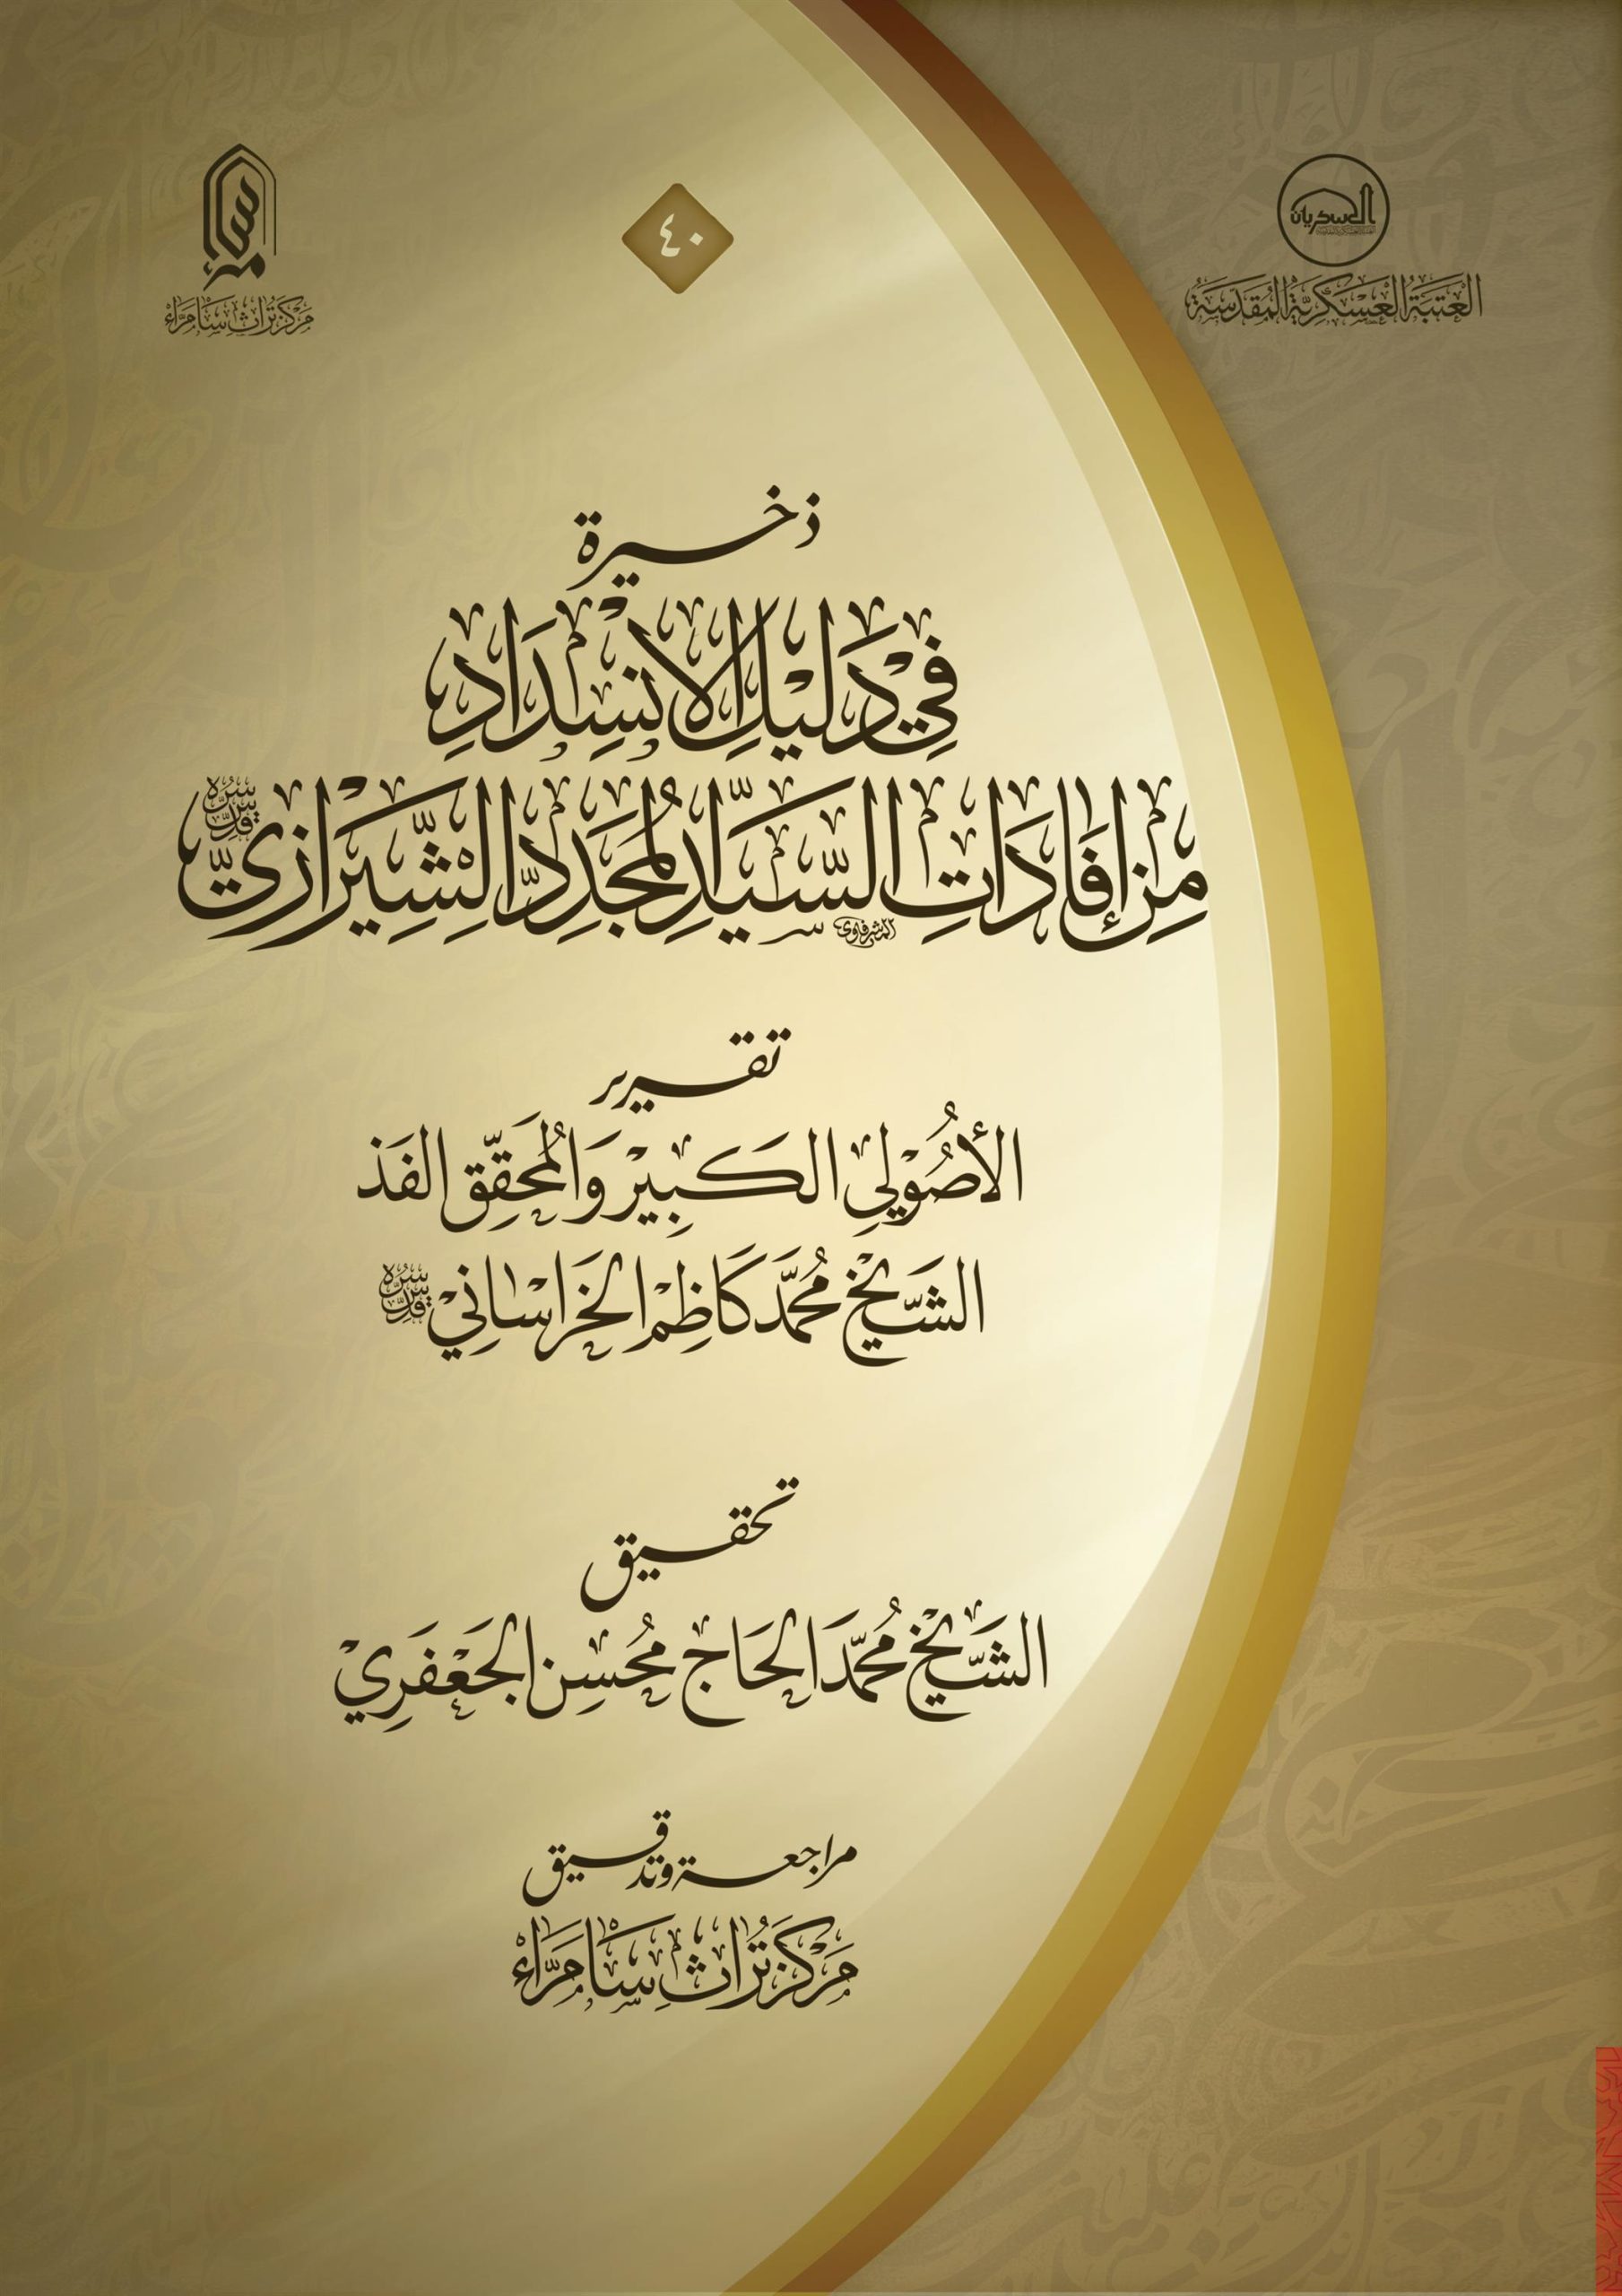 العسكريان
العتبة العسكرية المقدسة
٤٠
مركز تراث سامراء
ذخيرة
في دليل الانسداد
من إفادات السيد المجدد الشيرازي قدس سره
تقرير
الأصولي الكبير والمحقق الفذ
الشيخ محمد كاظم الخراساني قدس سره
تحقيق
الشيخ محمد الحاج محسن الجعفري
مراجعة وتدقيق
مركز تراث سامراء